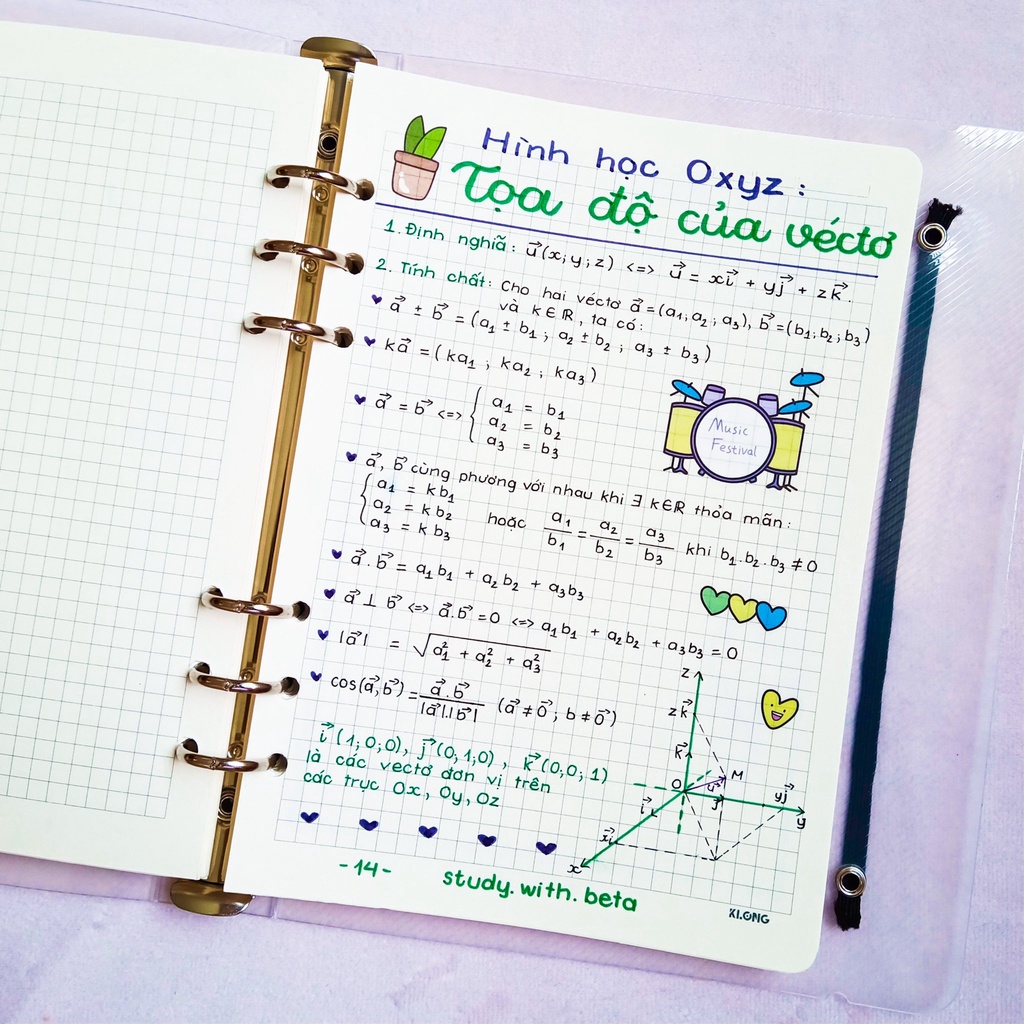 Hình học Oxyz:
Tọa độ của véctơ
1. Định nghiã: u⃗(x; y; z) <=> u⃗ = xi⃗ + yj⃗ + zk⃗.
2. Tính chất: Cho hai véctơ a⃗ = (a₁; a₂; a₃), b⃗ = (b₁; b₂; b₃)
và k ∈ ℝ, ta có:
♥ a⃗ ± b⃗ = (a₁ ± b₁; a₂ ± b₂; a₃ ± b₃)
♥ ka⃗ = (ka₁; ka₂; ka₃)
♥ a⃗ = b⃗ <=> { a₁ = b₁
a₂ = b₂
a₃ = b₃
Music
Festival
♥ a⃗, b⃗ cùng phương với nhau khi ∃ k∈ℝ thỏa mãn:
{ a₁ = kb₁
a₂ = kb₂
a₃ = kb₃
hoặc a₁/b₁ = a₂/b₂ = a₃/b₃ khi b₁.b₂.b₃ ≠ 0
♥ a⃗.b⃗ = a₁b₁ + a₂b₂ + a₃b₃
♥ a⃗ ⊥ b⃗ <=> a⃗.b⃗ = 0 <=> a₁b₁ + a₂b₂ + a₃b₃ = 0
♥ |a⃗| = √(a₁² + a₂² + a₃²)
♥ cos(a⃗, b⃗) = a⃗.b⃗/|a⃗|.|b⃗| (a⃗ ≠ 0⃗; b ≠ 0⃗)
i⃗(1; 0; 0), j⃗(0; 1; 0), k⃗(0; 0; 1)
là các vectơ đơn vị trên
các trục Ox, Oy, Oz
z
zk⃗
k⃗
M
O
u⃗
j⃗
yj⃗
y
i⃗
xi⃗
x
-14-
study.with.beta
KLONG